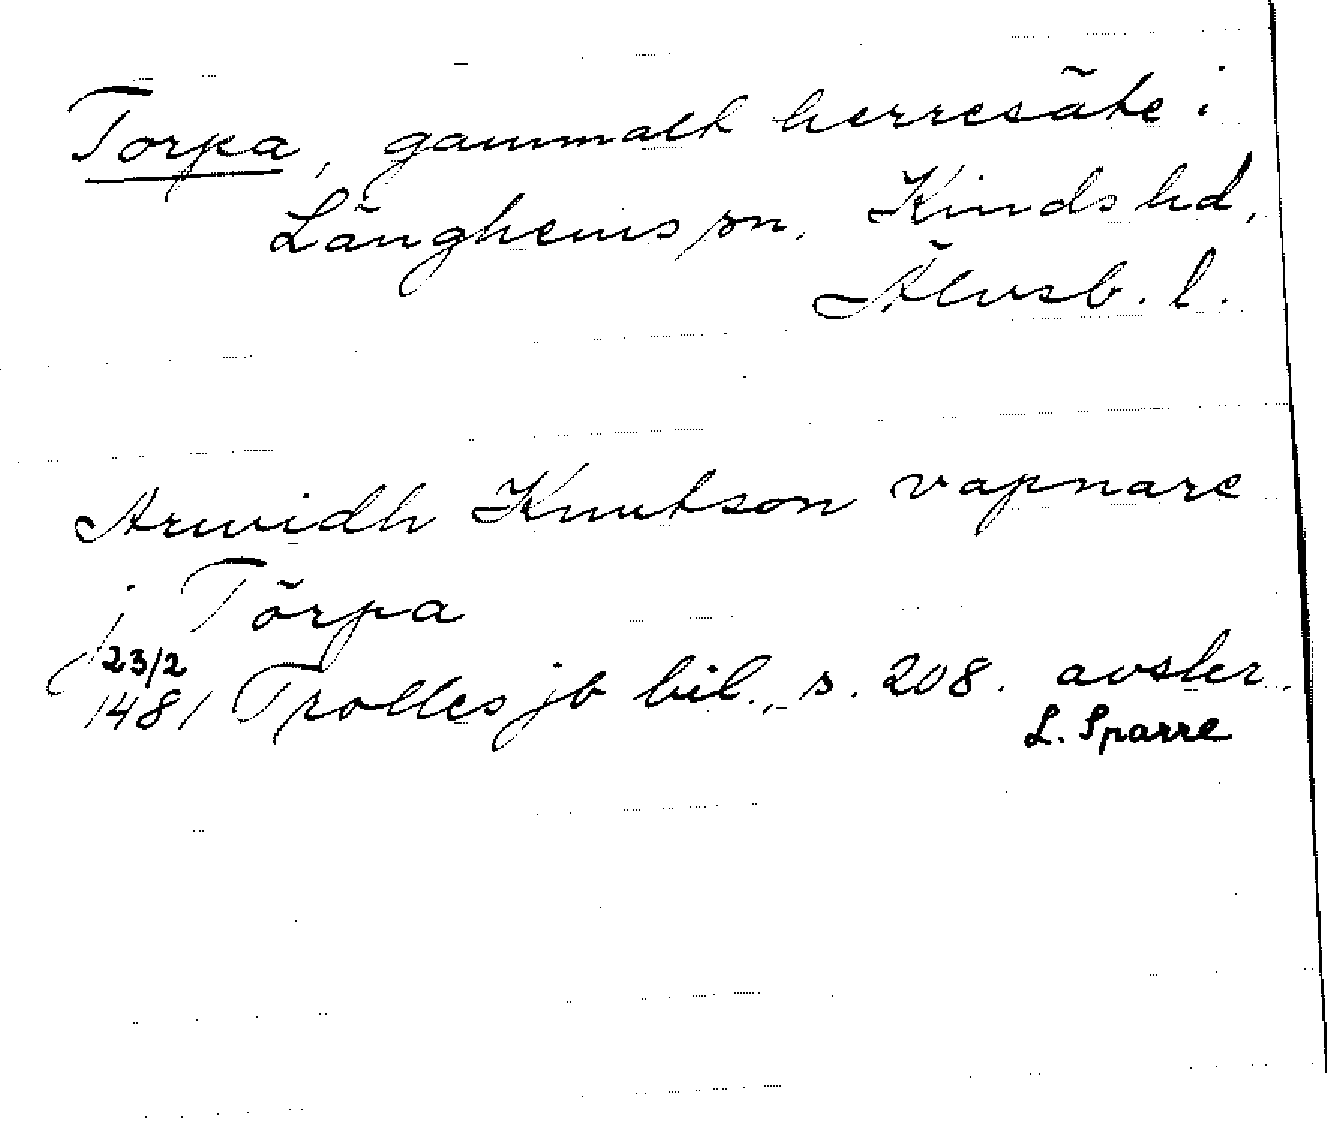 Torpa, gammalt herresäte i
Länghems sn, Kinds hd,
Älvsb. l.
Arwidh Knutson vapnare
j Törpa
23/2
1481 Trolles jb bil., s. 208. avskr.
L. Sparre